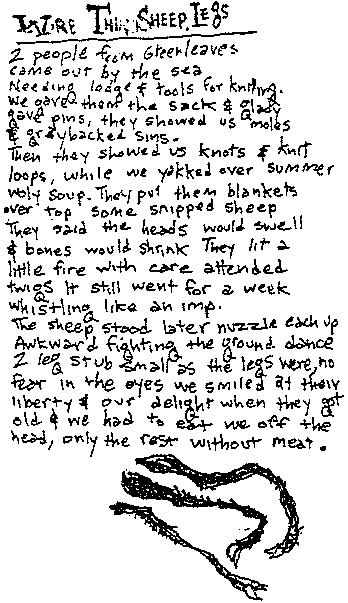 Wire Thin Sheep Legs
2 people from Greenleaves
came out by the sea
Needing lodge & tools for knitting.
We gave them the sack & glady
gave pins, they showed us moles
& graybacked sins.
Then they showed us knots & knit
loops, while we yakked over summer
woly soup. They put them blankets
over top some snipped sheep
They said the heads would swell
& bones would shrink They lit a
little fire with care attended
twigs It still went for a week
whistling like an imp.
The sheep stood later nuzzle each up
Awkward fighting the ground dance
2 leg stub small as the legs were, no
fear in the eyes we smiled at their
liberty & our delight when they got
old & we had to eat we off the
head, only the rest without meat.